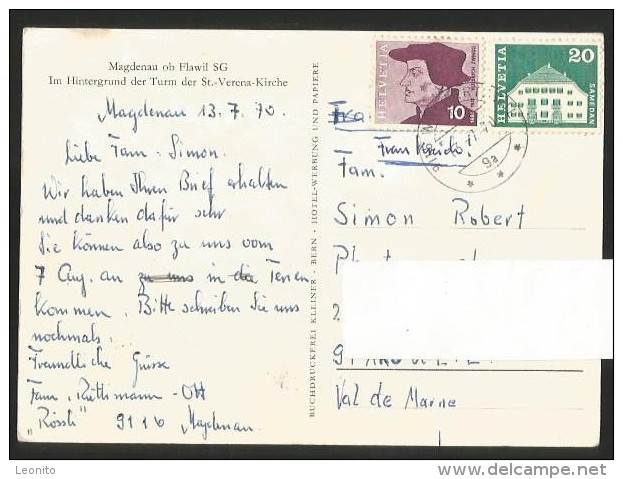 Magdenau ob Flawil SG
Im Hintergrund der Turm der St.-Verena-Kirche
Magdenau 13.7.70.
Liebe Fam. Simon.
Wir haben Ihren Brief erhalten
und danken dafür sehr
Sie können also zu uns vom
7 Aug. an zu uns in die Ferien
kommen. Bitte schreiben Sie uns
nochmals.
Freundliche Grüsse
Fam. Rüttimann-Ott
"Rössli" 9116 Magdenau.
BUCHDRUCKEREI KLEINER - BERN - HOTEL-WERBUNG UND PAPIERE
HELVETIA
10
HELVETIA
20
SAMEDAN
9a
Frankreich.
Fam.
Simon Robert
Val de Marne
Leonito
www.delcampe.net